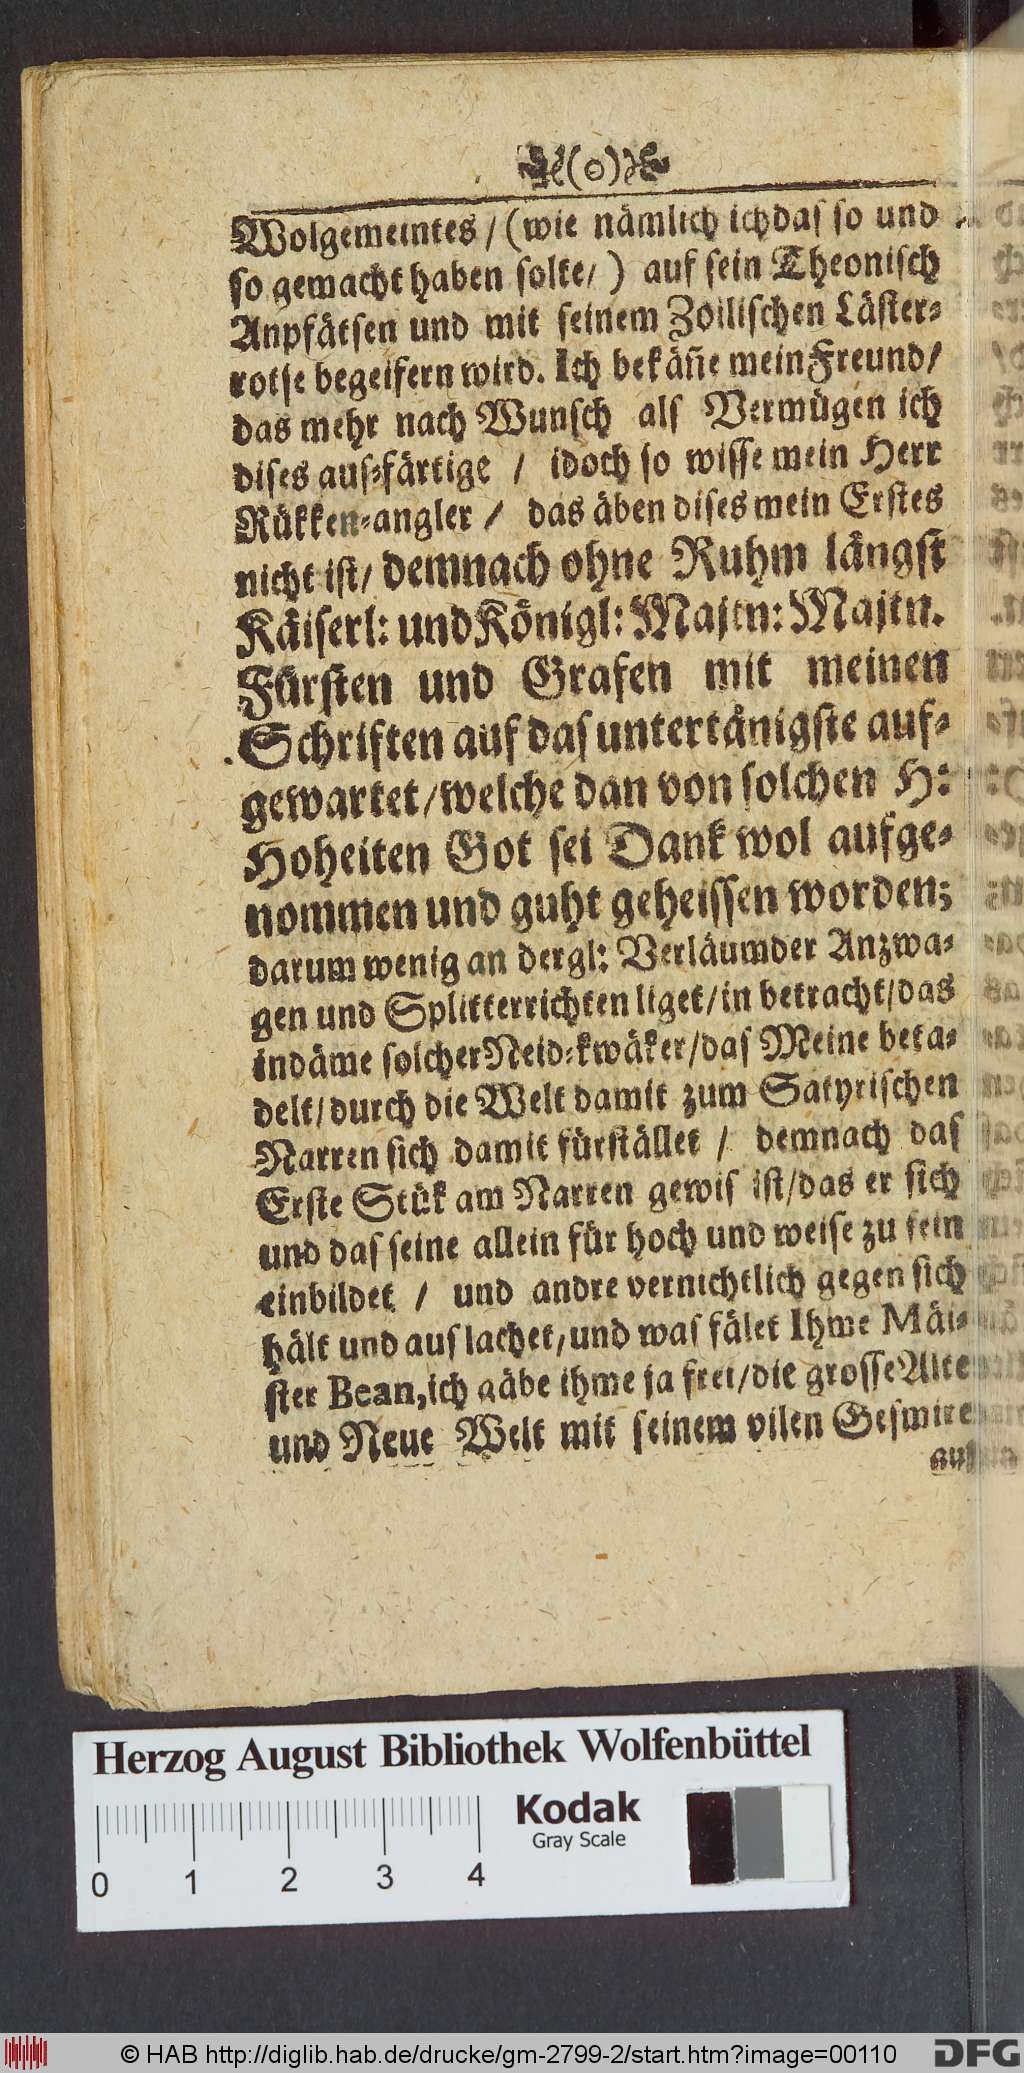 (o)
Wolgemeintes / (wie nämlich ich das so und
so gemacht haben solte / ) auf sein Theonisch
Anpfätsen und mit seinem Zoilischen Läster-
rotse begeifern wird. Ich bekäñe mein Freund /
das mehr nach Wunsch als Vermügen ich
dises aus-färtige / idoch so wisse mein Herr
Rükken-angler / das äben dises mein Erstes
nicht ist / demnach ohne Ruhm längst
Käiserl: und Königl: Majtn: Majtn.
Fürsten und Grafen mit meinen
Schriften auf das untertänigste auf-
gewartet / welche dan von solchen H:
Hoheiten Got sei Dank wol aufge-
nommen und guht geheissen worden;
darum wenig an dergl: Verläumder Anzwa-
gen und Splitterrichten liget / in betracht / das
indäme solcher Neid-kwäker / das Meine beta-
delt / durch die Welt damit zum Satyrischen
Narren sich damit fürstället / demnach das
Erste Stük am Narren gewis ist / das er sich
und das seine allein für hoch und weise zu sein
einbildet / und andre vernichtlich gegen sich
hält und aus lachet / und was fälet Ihme Mäi-
ster Bean, ich gäbe ihme ja frei / die grosse Alte
und Neue Welt mit seinem vilen Geswire
Herzog August Bibliothek Wolfenbüttel
Kodak
Gray Scale
0 1 2 3 4
© HAB http://diglib.hab.de/drucke/gm-2799-2/start.htm?image=00110
DFG